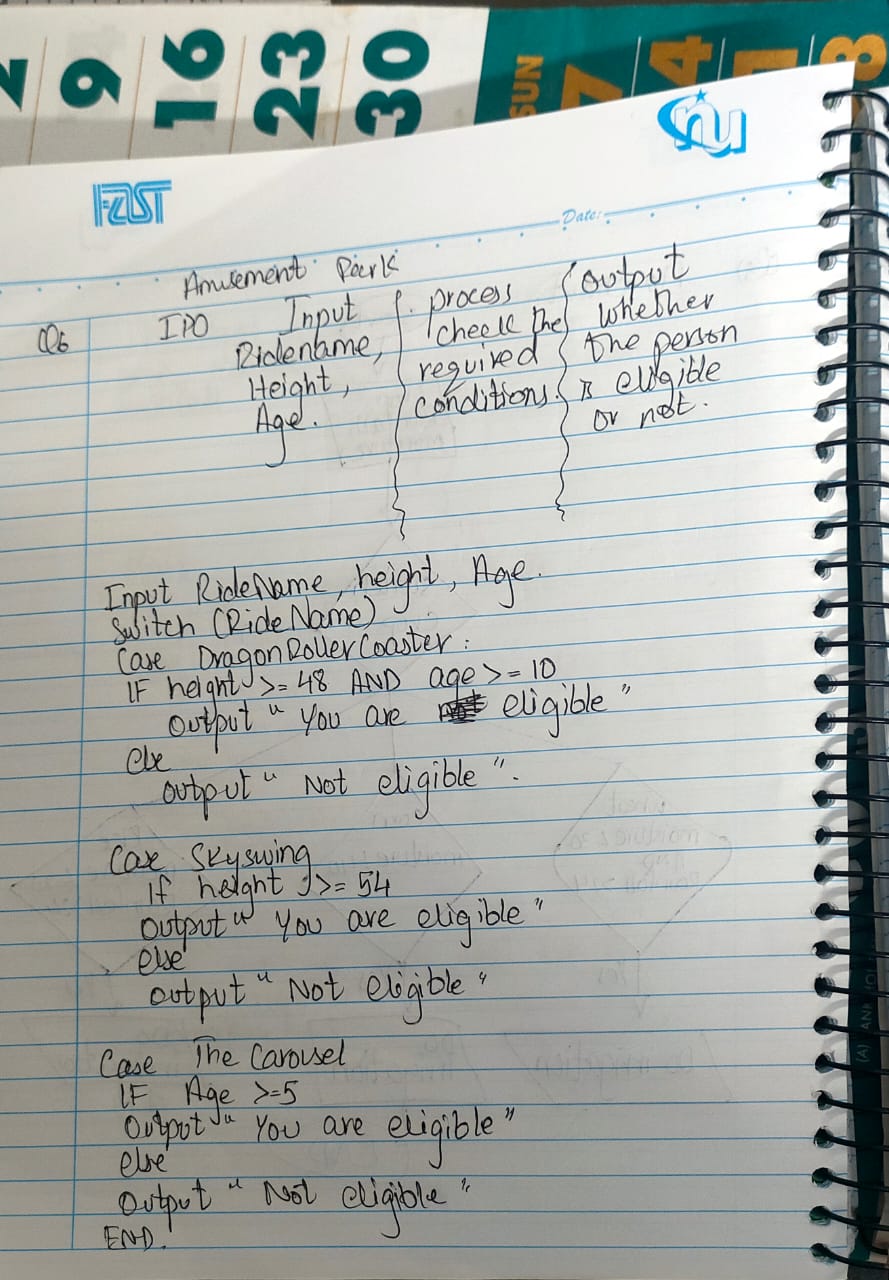 2 9 16 23 30 SUN 7 4 1 8
nu
FAST
Date:
Amusement Park
Q6 IPO Input process output
Ridename, check the whether
Height, required the person
Age. conditions. is eligible
or not.
Input RideName, height, Age.
Switch (RideName)
Case DragonRollerCoaster:
IF height >= 48 AND age >= 10
Output " You are eligible "
Else
output " Not eligible ".
Case Skyswing
If height >= 54
Output " You are eligible "
else
output " Not eligible "
Case The Carousel
IF Age >=5
Output " You are eligible "
else
Output " Not eligible "
END.